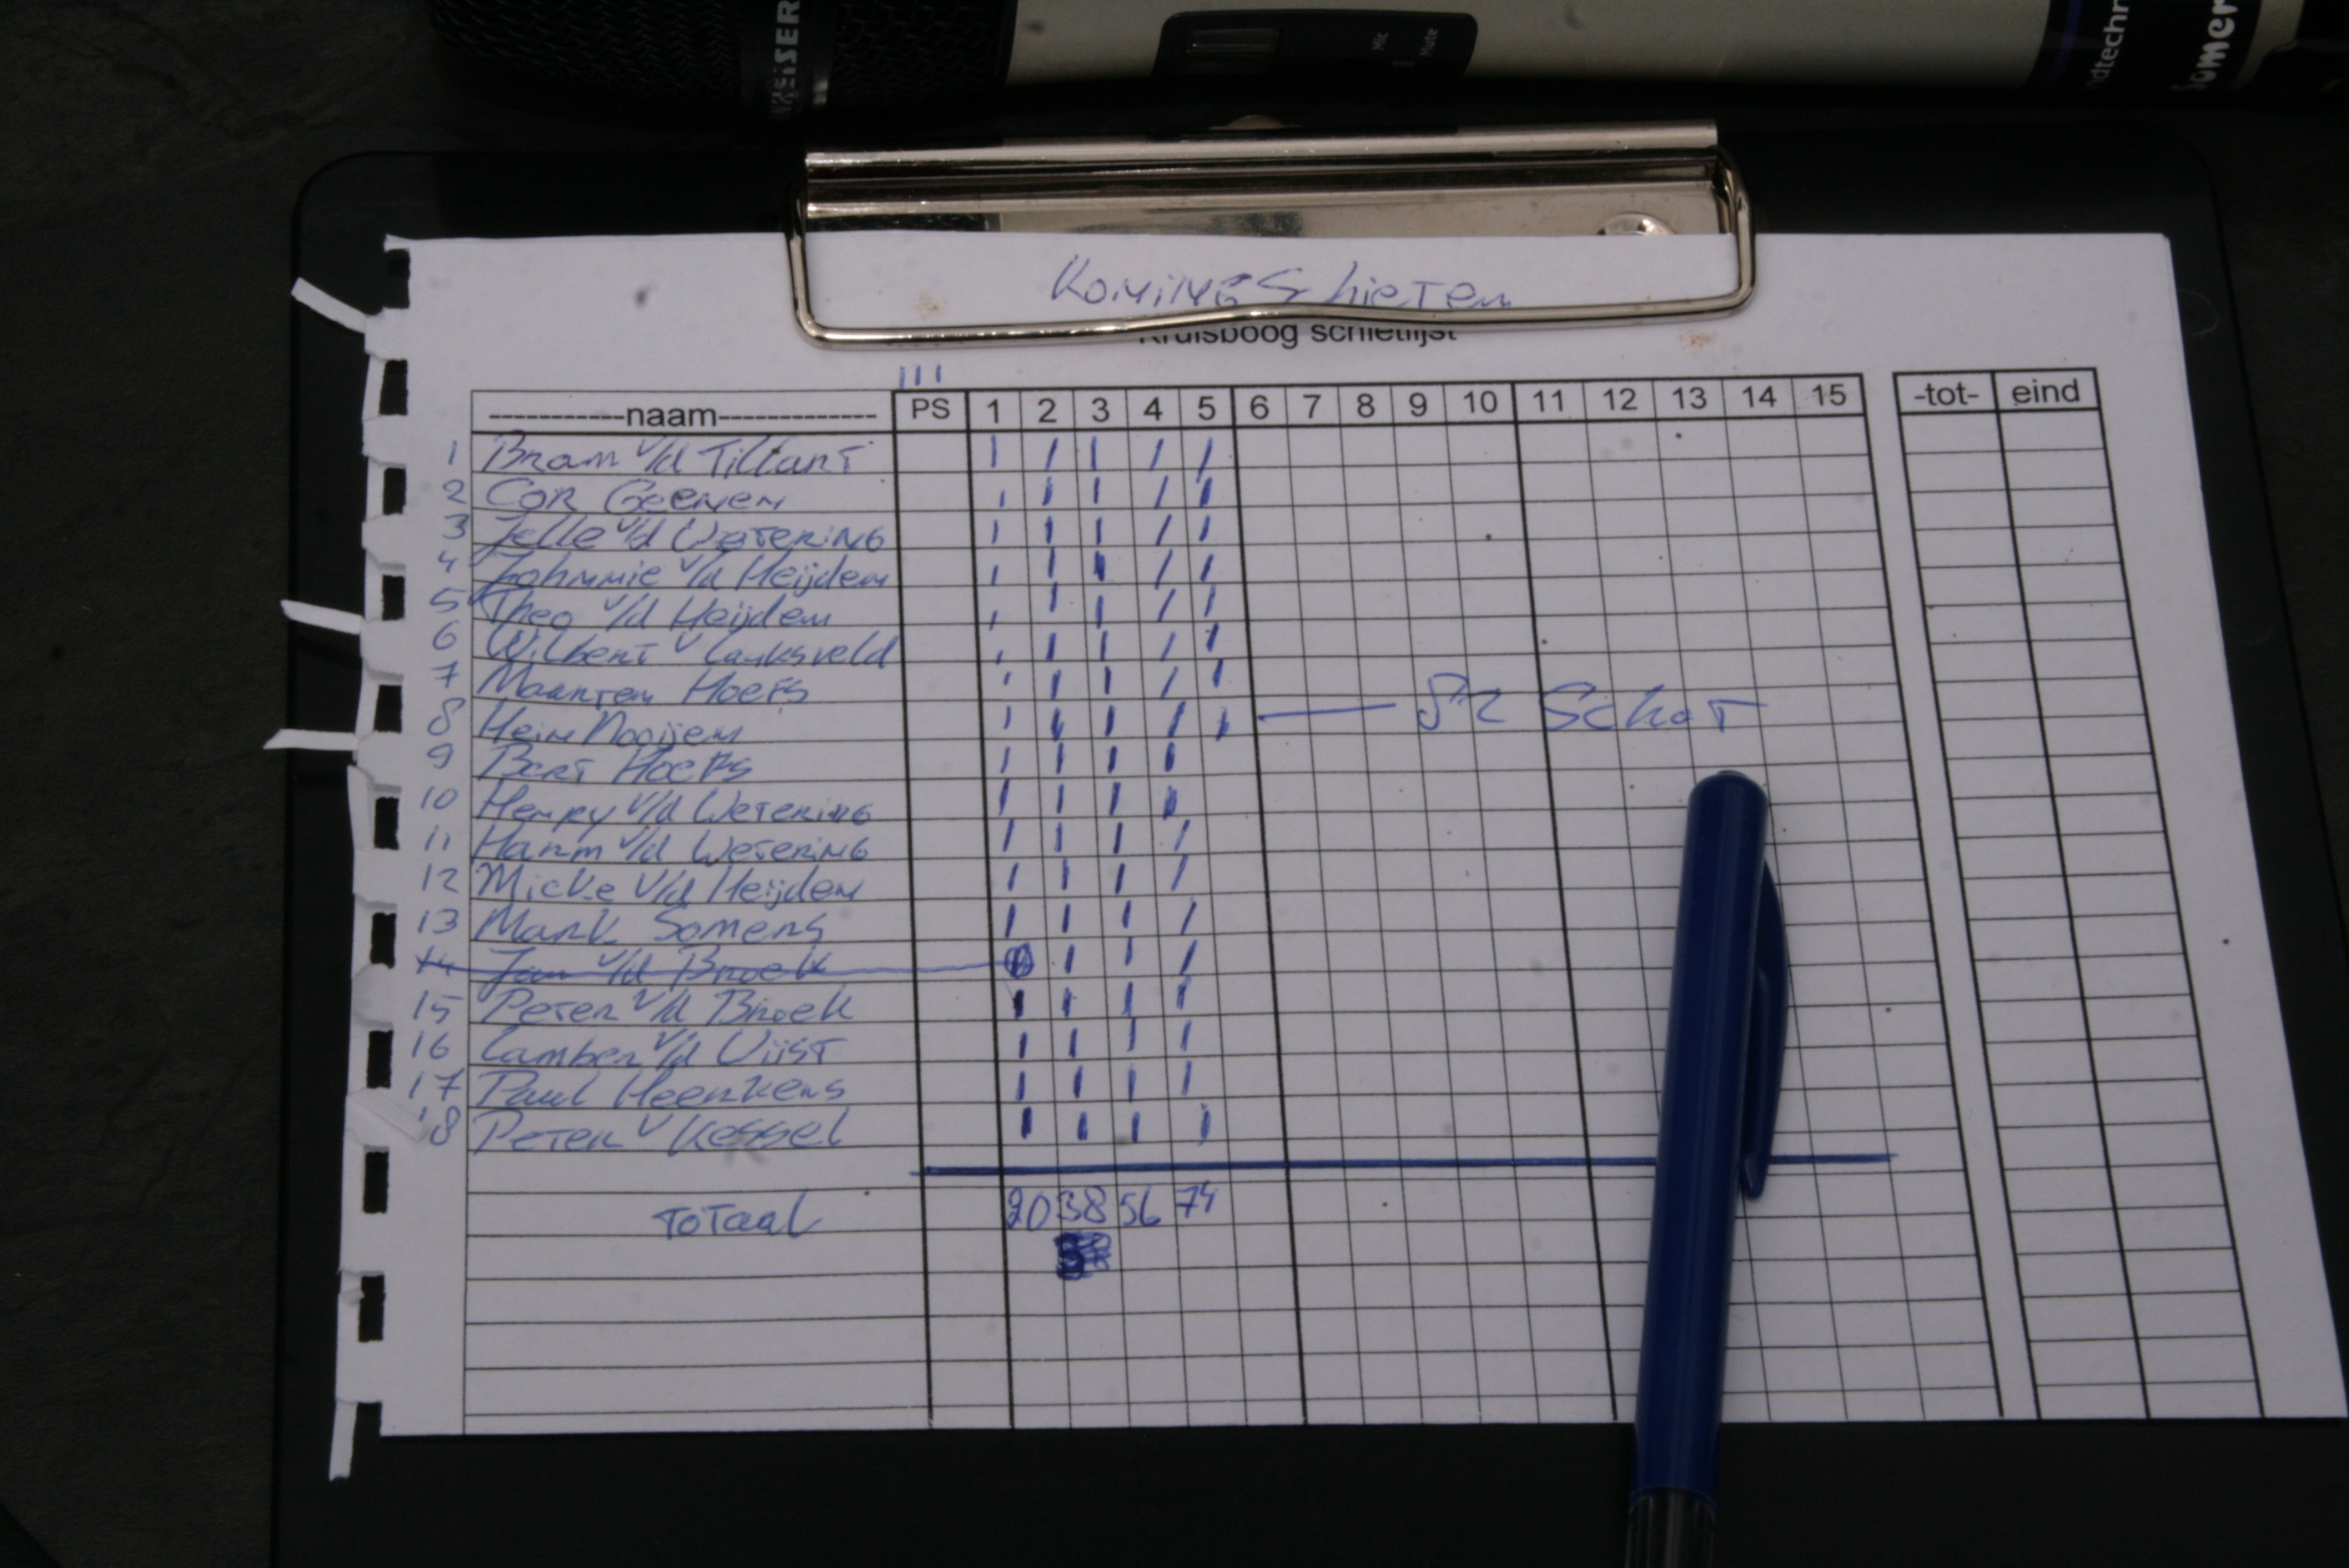 Mic
Mute
Somer
Koningschieten
Kruisboog schietlijst
III
-----------naam------------- PS 1 2 3 4 5 6 7 8 9 10 11 12 13 14 15 -tot- eind
1 Bram v/d Tillart I I I I I
2 Cor Geenen I I I I I
3 Jelle v/d Wetering I I I I I
4 Johnnie v/d Heijden I I I I I
5 Theo v/d Heijden I I I I I
6 Wilbert v Lanksveld I I I I I
7 Maarten Hoefs I I I I I
8 Hein Nooijen I I I I I — 82 Schot
9 Bert Hoefs I I I I
10 Henry v/d Wetering I I I I
11 Harm v/d Wetering I I I I
12 Micke v/d Heijden I I I I
13 Mark Somers I I I I
14 Jan v/d Broek I I I
15 Peter v/d Broek I I I I
16 Lamber v/d Vijst I I I I
17 Paul Heenkens I I I I
18 Peter v Kessel I I I I
Totaal 20 38 56 74